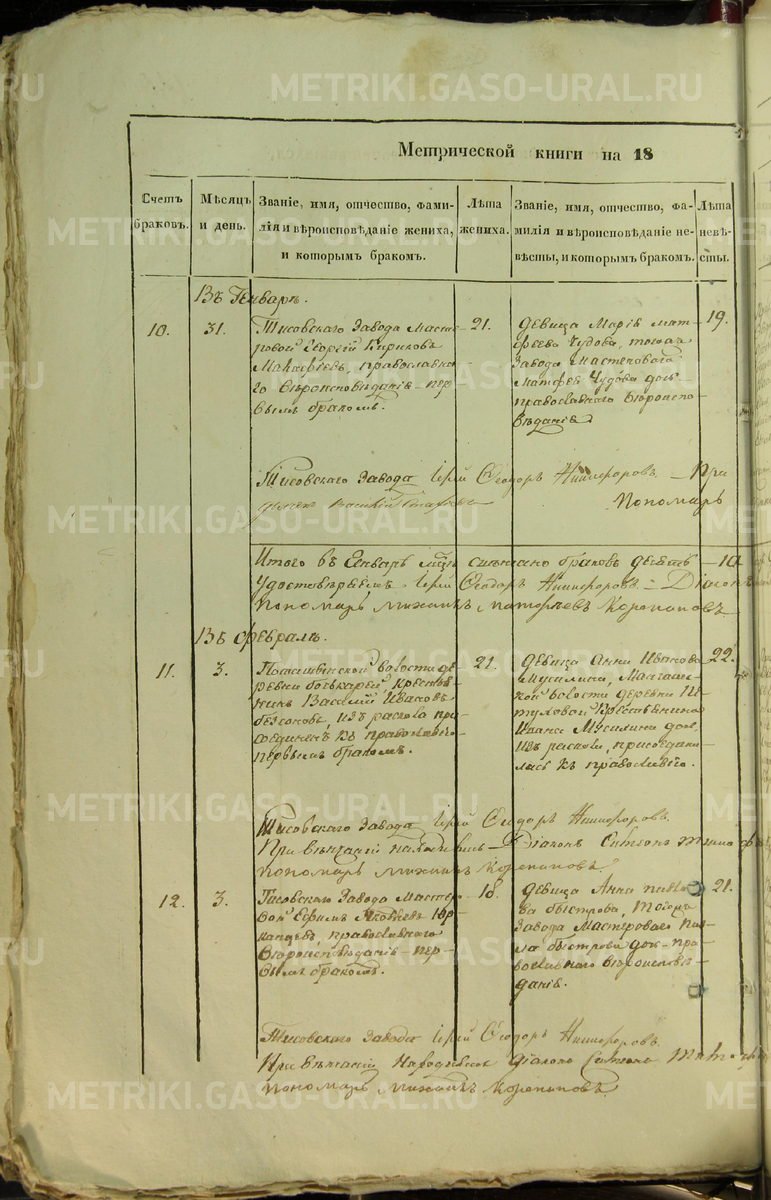 METRIKI.GASO-URAL.RU
Метрической книги на 18
Счетъ браковъ.
Мѣсяцъ и день.
Званіе, имя, отчество, фами-
лія и вѣроисповѣданіе жениха,
и которымъ бракомъ.
Лѣта
жениха.
Званіе, имя, отчество, фа-
милія и вѣроисповѣданіе не-
вѣсты, и которымъ бракомъ.
Лѣта
невѣ-
сты.
Въ Генварѣ.
10.
31.
Тисовскаго Завода Масте-
ровой Георгій Кириловъ
православна-
го вѣроисповѣданія пер-
вымъ бракомъ.
21.
девица Марія Мат-
ѳеева Чудова, тогожъ
Завода Мастероваго
Матфея Чудова дочь
православнаго вѣроиспо-
вѣданія
19.
Тисовскаго Завода Іерей Ѳеодоръ Никифоровъ При
дьячекъ Василій
Пономарь
Итого въ Генварѣ сочетано браковъ десять 10
Удостовѣряемъ Іерей Ѳеодоръ Никифоровъ Діаконъ
Пономарь Михаилъ Матфеевъ Корепановъ
Въ Февралѣ.
11.
3.
волости де-
ревни кресть-
нинъ Василій Ивановъ
изъ раскола при-
соединенъ къ православію
первымъ бракомъ.
21.
девица Анна Иванова
Мусилина,
волости деревни
крестьянина
Ивана Мусилина дочь,
изъ раскола, присоедини-
лась къ православію.
22.
Тисовскаго Завода Іерей Ѳеодоръ Никифоровъ
При вѣнчаніи находились Діаконъ Симеонъ
пономарь Михаилъ Корепановъ
12.
3.
Тисовскаго Завода Мастер-
вой Ефимъ Яковлевъ
православнаго
вѣроисповѣданія пер-
вымъ бракомъ.
18.
девица Анна Павло-
ва Быстрова, тогожъ
Завода Мастероваго Пав-
ла Быстрова дочь пра-
вославнаго вѣроисповѣ-
данія.
21.
Тисовскаго Завода Іерей Ѳеодоръ Никифоровъ
При вѣнчаніи находились Діаконъ Симеонъ
пономарь Михаилъ Корепановъ